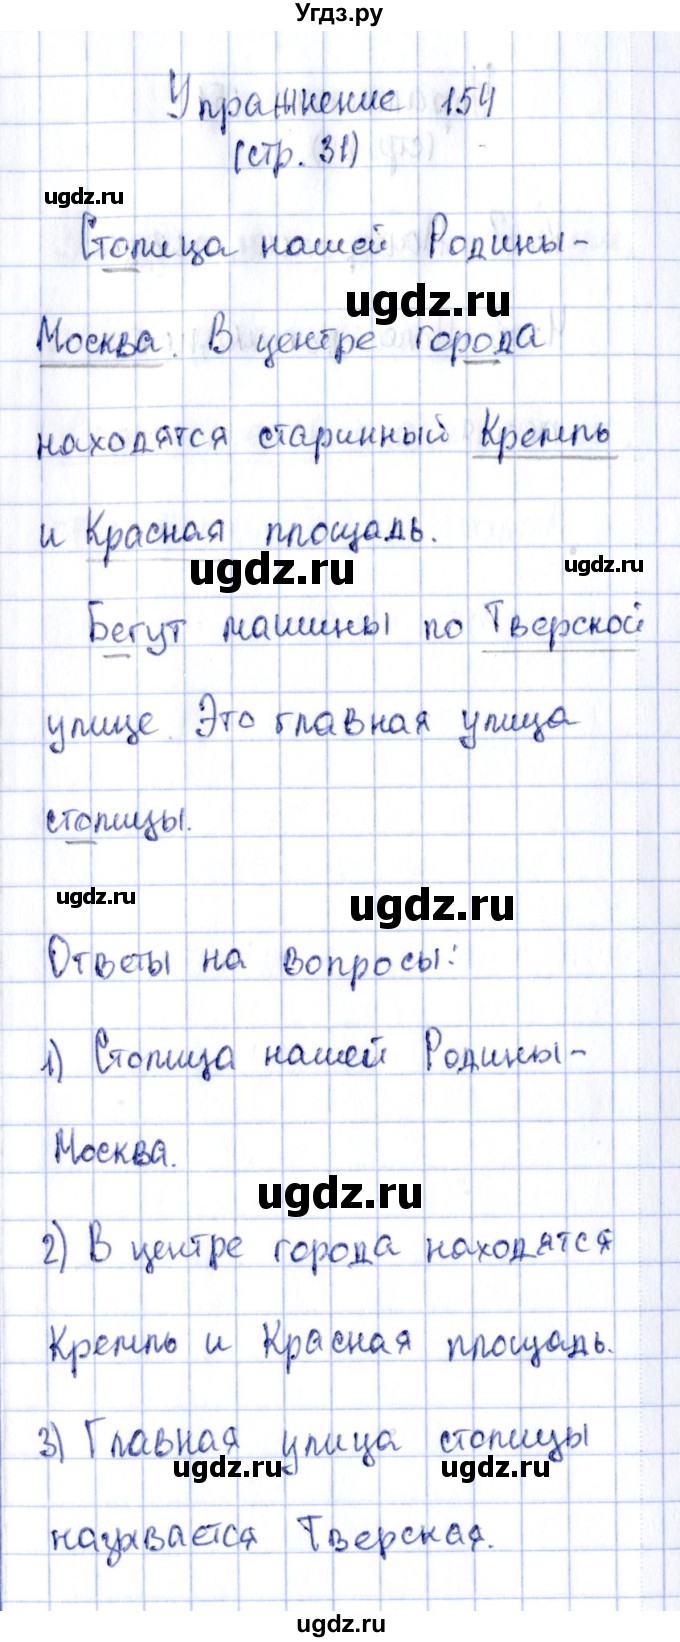 Угдз.ру
Упражнение 154
(стр. 31)
ugdz.ru
Столица нашей Родины-
ugdz.ru
Москва. В центре города
находятся старинный Кремль
и Красная площадь.
ugdz.ru ugdz.ru
Бегут машины по Тверской
улице. Это главная улица
столицы.
ugdz.ru ugdz.ru
Ответы на вопросы:
1) Столица нашей Родины-
Москва.
ugdz.ru
2) В центре города находятся
Кремль и Красная площадь.
3) Главная улица столицы
ugdz.ru ugdz.ru
называется Тверская.
ugdz.ru